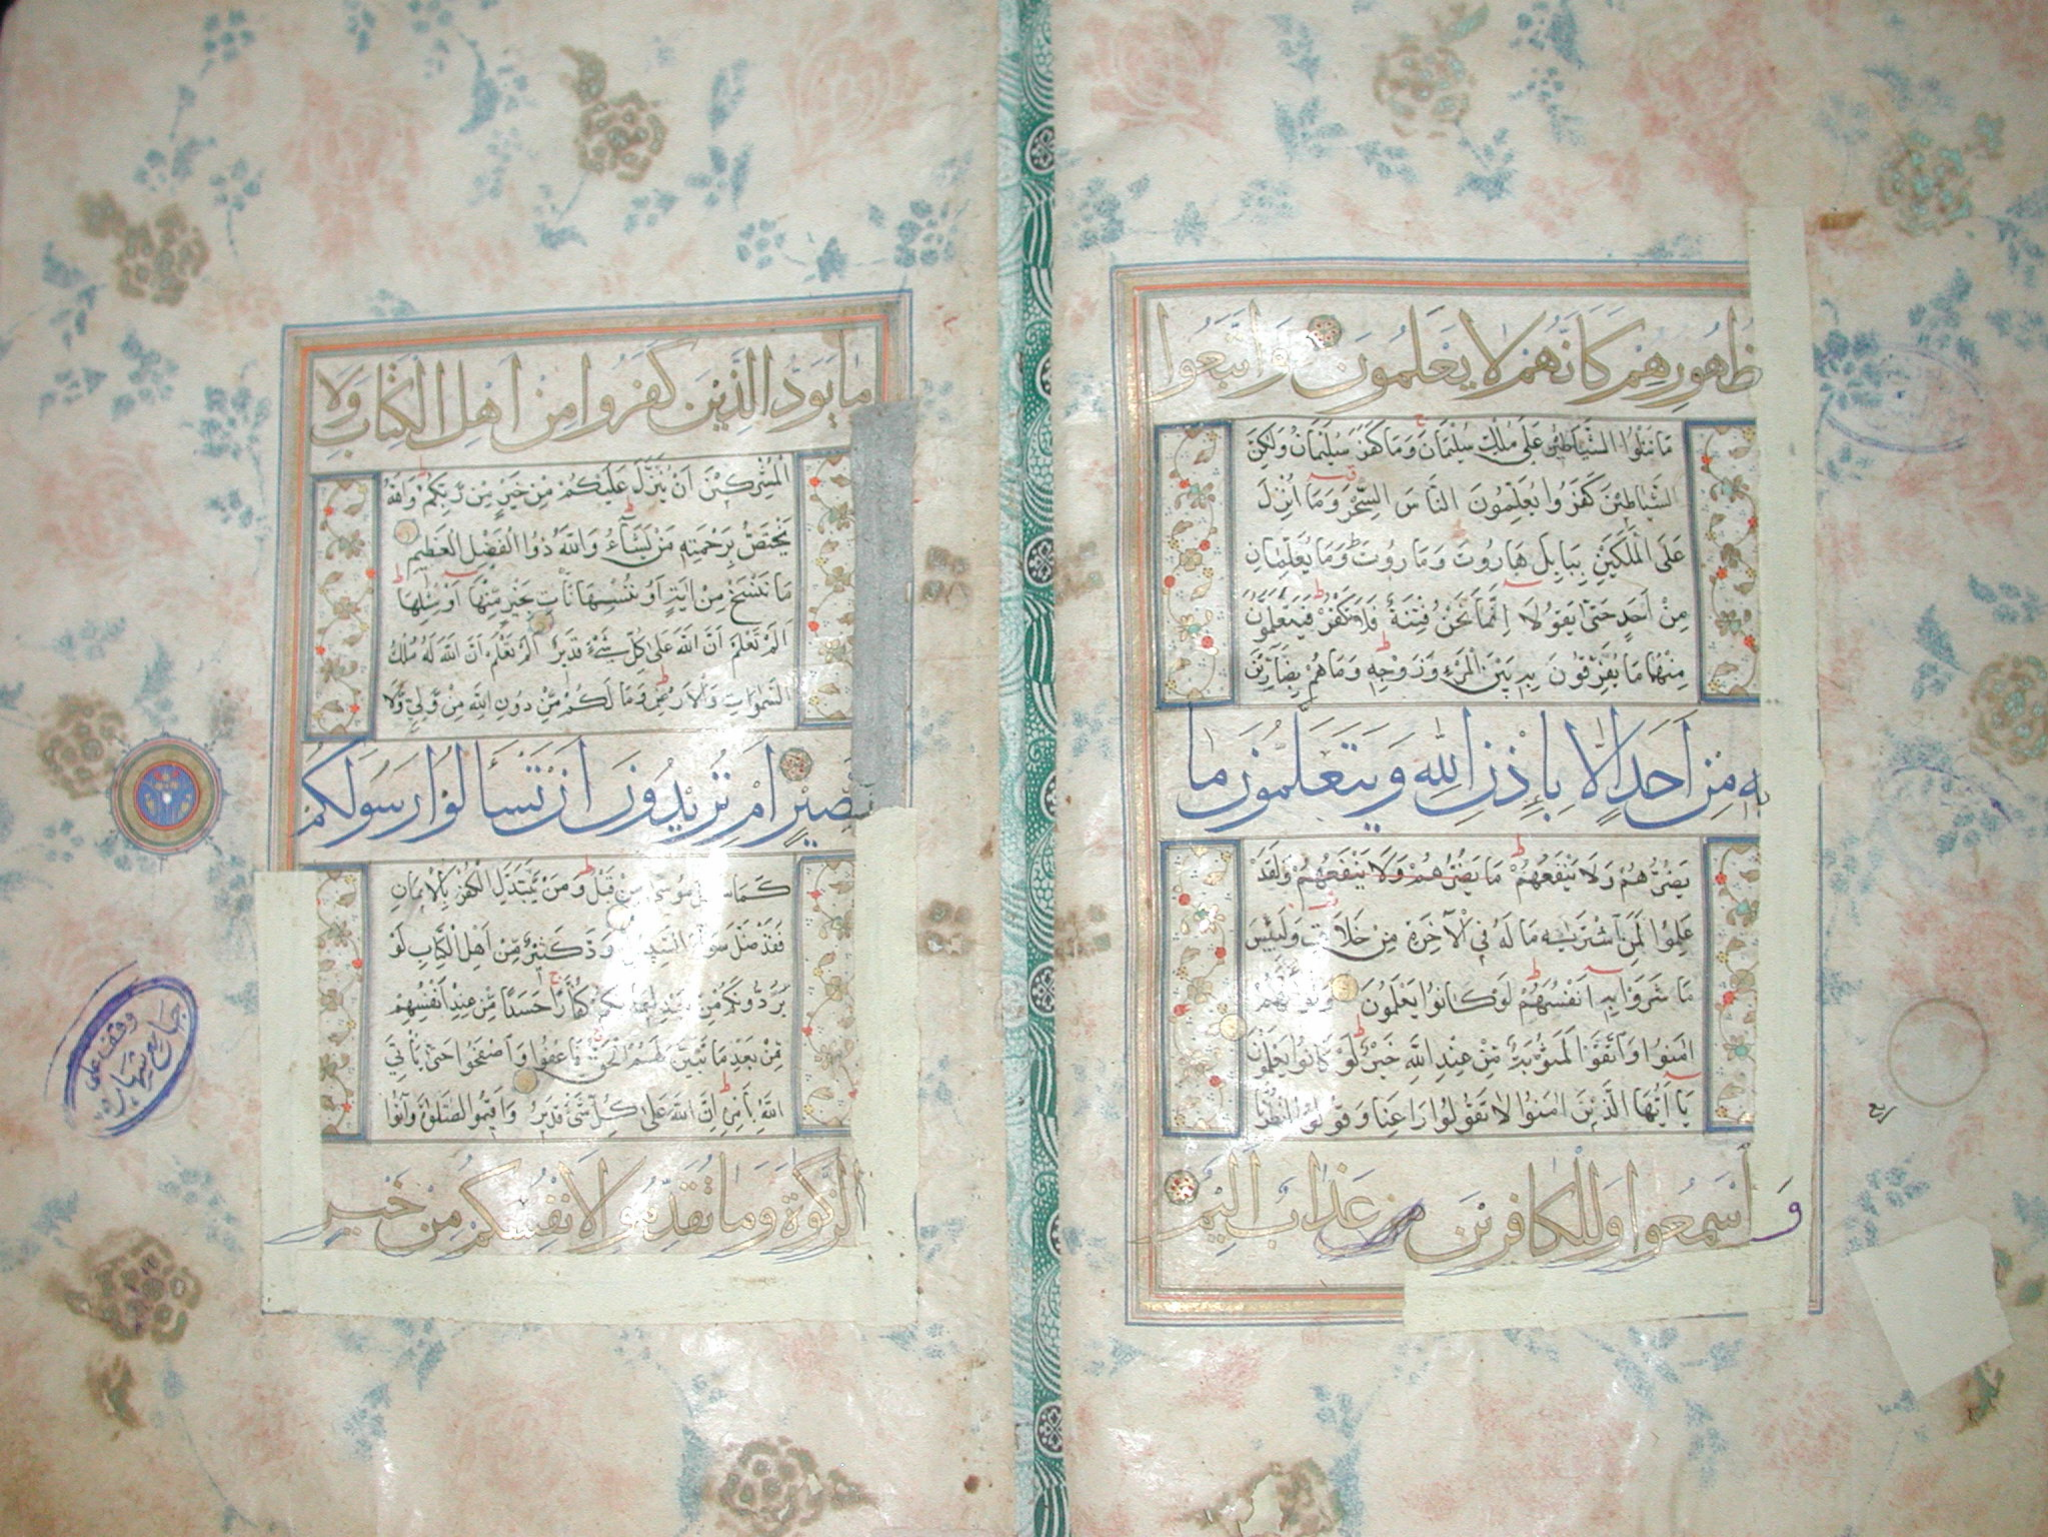 ظهورهم كانهم لا يعلمون واتبعوا
ما تتلوا الشياطين على ملك سليمان وما كفر سليمان ولكن
الشياطين كفروا يعلمون الناس السحر وما انزل
على الملكين ببابل هاروت وماروت وما يعلمان
من احد حتى يقولا انما نحن فتنة فلا تكفر فيتعلمون
منهما ما يفرقون به بين المرء وزوجه وما هم بضارين
به من احد الا باذن الله ويتعلمون ما
يضرهم ولا ينفعهم ما يضرهم ولا ينفعهم ولقد
علموا لمن اشتريه ما له في الآخرة من خلاق ولبئس
ما شروا به انفسهم لو كانوا يعلمون ولو انهم
امنوا واتقوا لمثوبة من عند الله خير لو كانوا يعلمون
يا ايها الذين امنوا لا تقولوا راعنا وقولوا انظرنا
واسمعوا وللكافرين عذاب اليم
ربع
ما يود الذين كفروا من اهل الكتاب ولا
المشركين ان ينزل عليكم من خير من ربكم والله
يختص برحمته من يشاء والله ذوا الفضل العظيم
ما ننسخ من اية او ننسها نأت بخير منها او مثلها
الم تعلم ان الله على كل شيء قدير الم تعلم ان الله له ملك
السموات والارض وما لكم من دون الله من ولي ولا
نصير ام تريدون ان تسألوا رسولكم
كما سئل موسى من قبل ومن يتبدل الكفر بالايمان
فقد ضل سواء السبيل ود كثير من اهل الكتاب لو
يردونكم من بعد ايمانكم كفارا حسدا من عند انفسهم
من بعد ما تبين لهم الحق فاعفوا واصفحوا حتى يأتي
الله بأمره ان الله على كل شيء قدير واقيموا الصلوة وآتوا
الزكوة وما تقدموا لانفسكم من خير
وقف على
جامع